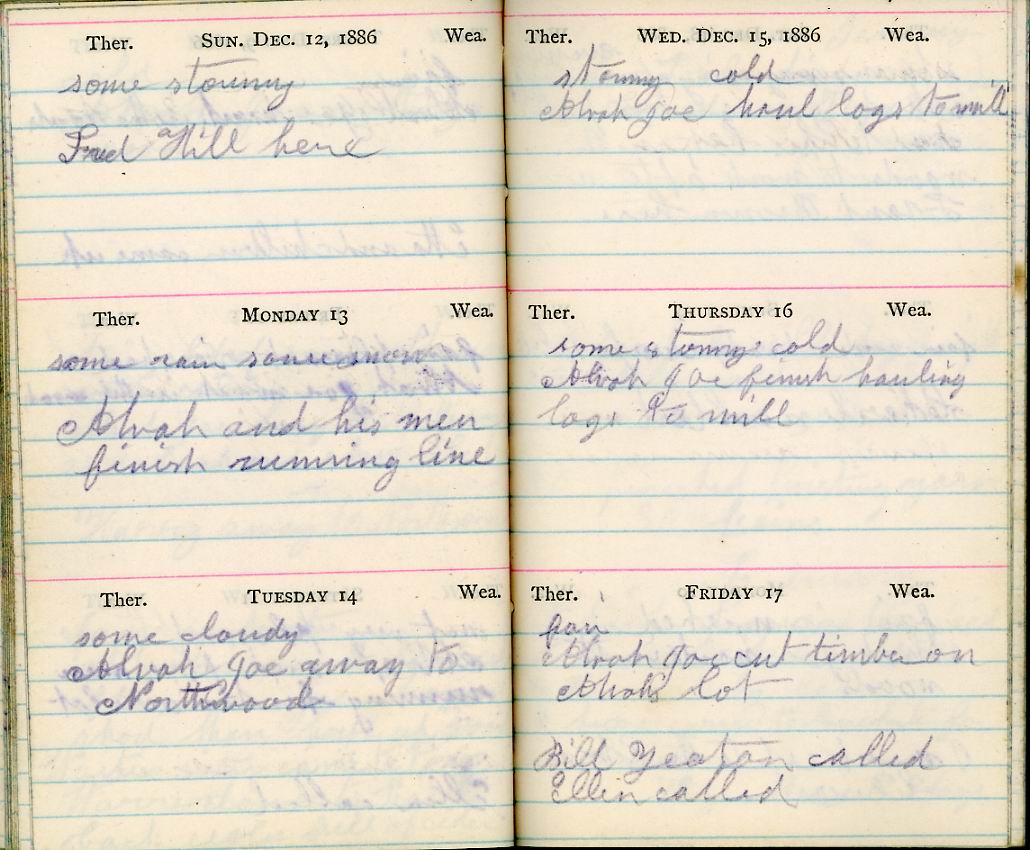 Ther. SUN. DEC. 12, 1886 Wea.
some stormy
Fred Hill here
Ther. MONDAY 13 Wea.
some rain some snow
Alvah and his men
finish running line
Ther. TUESDAY 14 Wea.
some cloudy
Alvah Joe away to
Northwood
Ther. WED. DEC. 15, 1886 Wea.
stormy cold
Alvah Joe haul logs to mill
Ther. THURSDAY 16 Wea.
some stormy cold
Alvah Joe finish hauling
logs to mill
Ther. FRIDAY 17 Wea.
fair
Alvah Joe cut timber on
Alvahs lot
Bill Yeaton called
Ellin called